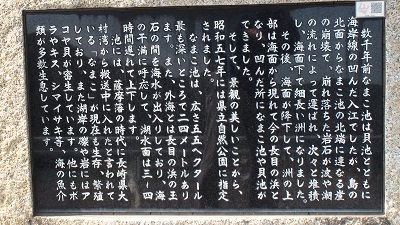 数千年前なまこ池は貝池とともに
海岸線の凹んだ入江でしたが、島の
北面からなまこ池の北端に連なる崖
の崩壊で、崩れ落ちた岩石が波や潮
の流れによって運ばれ、次々と堆積
し、海面下で細長い洲になりました。
その後、海面が降下して、洲の上
部は海面から現れて今の長目の浜と
なり、凹んだ所になまこ池や貝池が
できました。
そして、景観の美しいことから、
昭和五七年には県立自然公園に指定
されました。
なまこ池は、広さ五五ヘクタール
最も深いところで二四メートルあり
ます。また、外海とは長目の浜の玉
石の間を海水が出入りしており、海
の干満に呼応して、湖水面は三～四
時間遅れて上下します。
池には、薩摩藩の時代に長崎県大
村湾から搬送中に入れたと言われて
いる、なまこが現在も生存、繁殖
しており、また湖岸の礫や岩にはア
コヤ貝が密生しています。他にもボ
ラやキス、シマイサキ等、海の魚介
類が多数生息しています。